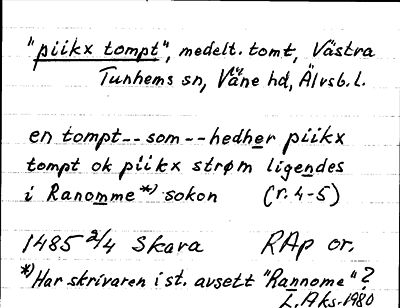 "piikx tompt", medelt. tomt, Västra
Tunhems sn, Väne hd, Älvsb. l.
en tompt -- som -- hedher piikx
tompt ok piikx strøm ligendes
i Ranomme*) sokon (r. 4-5)
1485 2/4 Skara RAp or.
*) Har skrivaren i st. avsett "Rannome"?
L. Aks. 1980